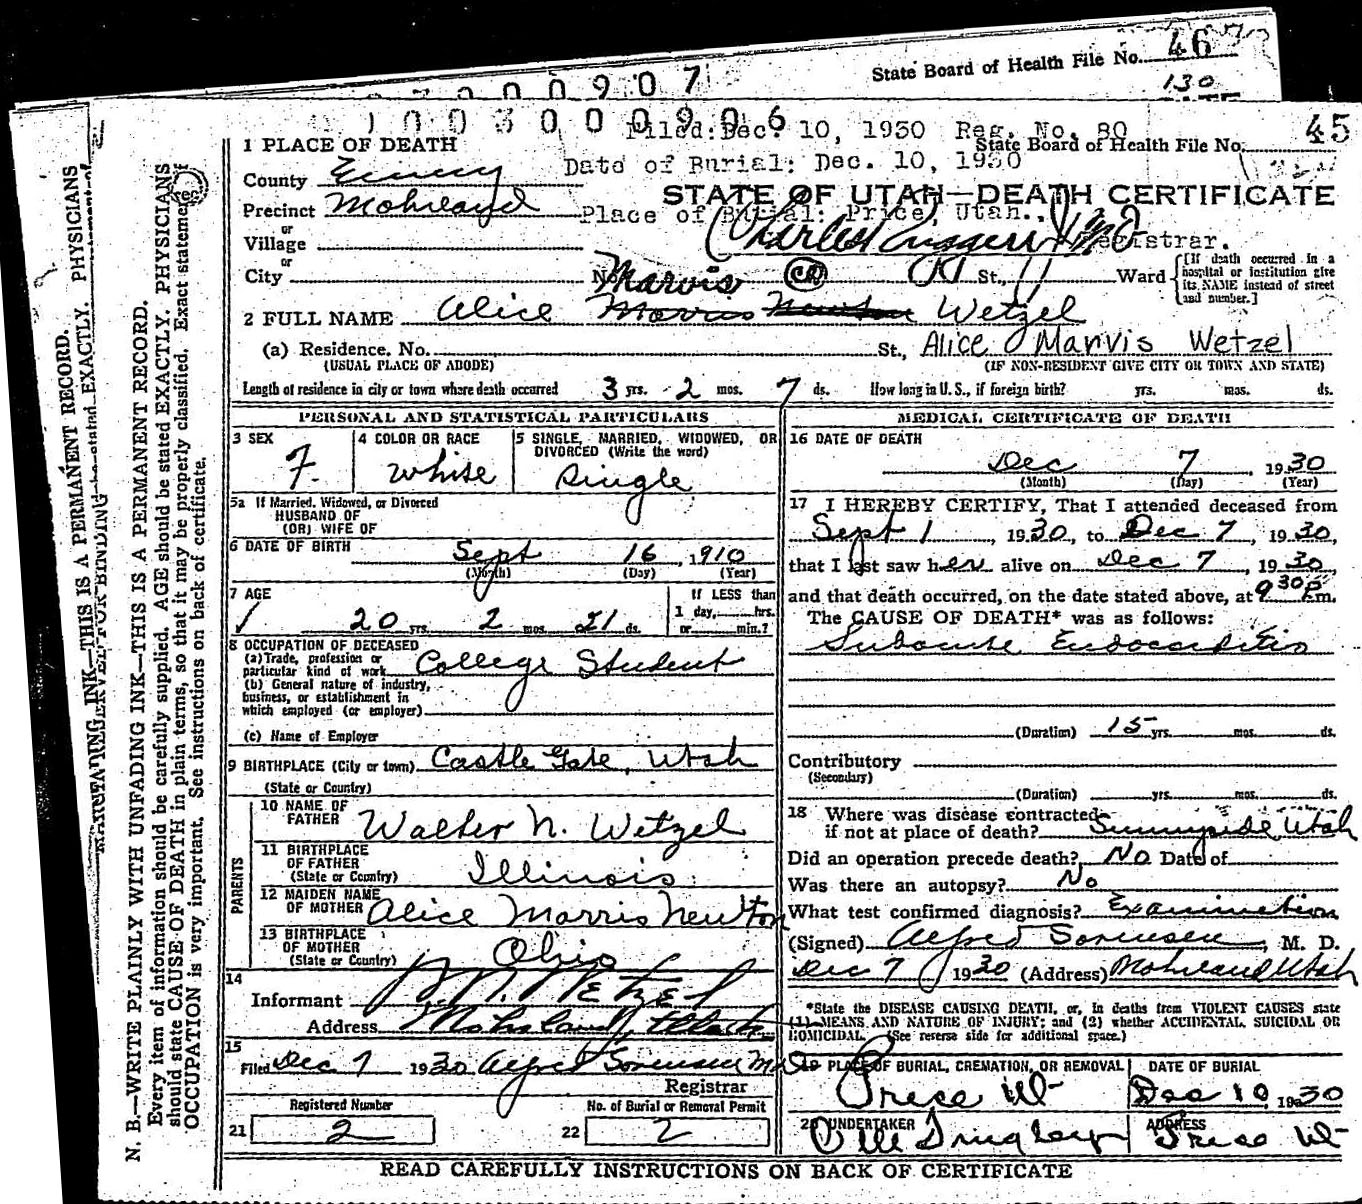 State Board of Health File No. 46
130
0 0 0 9 0 7
1 0 0 3 0 0 0 9 0 6
Filed: Dec. 10, 1930 Reg. No. 80
State Board of Health File No. 45
Date of Burial: Dec. 10, 1930
1 PLACE OF DEATH
County Emery
STATE OF UTAH—DEATH CERTIFICATE
Precinct Mohrland
Place of Burial: Price, Utah.,
or
Village
Charles Registrar.
or
City
No. St., Ward
[If death occurred in a hospital or institution give its NAME instead of street and number.]
Marvis CR
2 FULL NAME Alice Morris Newton Wetzel
(a) Residence. No. St., Alice Marvis Wetzel
(USUAL PLACE OF ABODE) (IF NON-RESIDENT GIVE CITY OR TOWN AND STATE)
Length of residence in city or town where death occurred 3 yrs. 2 mos. 7 ds. How long in U. S., if foreign birth? yrs. mos. ds.
PERSONAL AND STATISTICAL PARTICULARS
3 SEX F.
4 COLOR OR RACE White
5 SINGLE, MARRIED, WIDOWED, OR
DIVORCED (Write the word)
Single
5a If Married, Widowed, or Divorced
HUSBAND OF
(OR) WIFE OF
6 DATE OF BIRTH Sept 16, 1910
(Month) (Day) (Year)
7 AGE
20 yrs. 2 mos. 21 ds.
If LESS than
1 day, hrs.
or min.?
8 OCCUPATION OF DECEASED
(a) Trade, profession or
particular kind of work College Student
(b) General nature of industry,
business, or establishment in
which employed (or employer)
(c) Name of Employer
9 BIRTHPLACE (City or town) Castle Gate, Utah
(State or Country)
PARENTS
10 NAME OF
FATHER Walter N. Wetzel
11 BIRTHPLACE
OF FATHER
(State or Country) Illinois
12 MAIDEN NAME
OF MOTHER Alice Morris Newton
13 BIRTHPLACE
OF MOTHER
(State or Country) Ohio
14
Informant Wetzel
Address Mohrland, Utah
15
Filed Dec 7 1930 Alfred Sorensen MD
Registrar
Registered Number No. of Burial or Removal Permit
21 2 22 2
MEDICAL CERTIFICATE OF DEATH
16 DATE OF DEATH
Dec 7, 1930
(Month) (Day) (Year)
17 I HEREBY CERTIFY, That I attended deceased from
Sept 1, 1930, to Dec 7, 1930,
that I last saw her alive on Dec 7, 1930
and that death occurred, on the date stated above, at 9 30 P.m.
The CAUSE OF DEATH* was as follows:
Subacute Endocarditis
(Duration) 15 yrs. mos. ds.
Contributory
(Secondary)
(Duration) yrs. mos. ds.
18 Where was disease contracted
if not at place of death? Sunnyside Utah
Did an operation precede death? No Date of
Was there an autopsy? No
What test confirmed diagnosis? Examination
(Signed) Alfred Sorensen, M. D.
Dec 7 1930 (Address) Mohrland Utah
*State the DISEASE CAUSING DEATH, or, in deaths from VIOLENT CAUSES state
(1) MEANS AND NATURE OF INJURY; and (2) whether ACCIDENTAL, SUICIDAL OR
HOMICIDAL. (See reverse side for additional space.)
19 PLACE OF BURIAL, CREMATION, OR REMOVAL DATE OF BURIAL
Price Ut Dec 10, 1930
20 UNDERTAKER ADDRESS
Price Ut
READ CAREFULLY INSTRUCTIONS ON BACK OF CERTIFICATE
N. B.—WRITE PLAINLY WITH UNFADING INK—THIS IS A PERMANENT RECORD.
Every item of information should be carefully supplied. AGE should be stated EXACTLY. PHYSICIANS
should state CAUSE OF DEATH in plain terms, so that it may be properly classified. Exact statement of
OCCUPATION is very important. See instructions on back of certificate.
INK—THIS IS A PERMANENT RECORD.
stated EXACTLY. PHYSICIANS